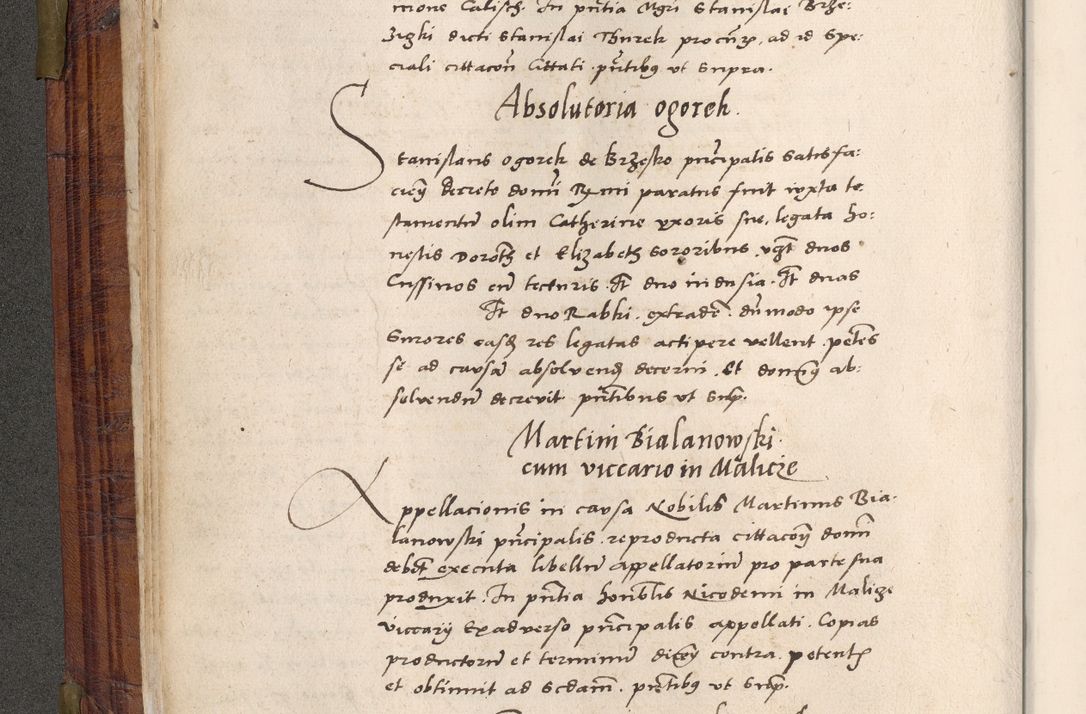 mone Calisch. In pñtia Mgri Stanislai Brze:
zizki dicti Stanislai Thurek procũr, ad id spe:
ciali cittacoñ Cittati. pñtibq ut supra.
Absolutoria ogorek.
Stanislaus ogorek de Brzesko prĩcipalis satisfa:
cieñ decreto domĩ R. mi paratus fuit iuxta te
stamentũ olim Catherine uxoris sue, legata ho:
nestis Doroth et Elizabeth sororibus, vȝt duos
Cussinos cũ tecturis. It duo indusia. It duas
It duo Rabki. extradẽ. dũmodo ipse
Sorores easdȝ res legatas accipere vellent. petẽs
se ad causã absolvendȝ decerni. Et domĩq ab:
solvendũ decrevit pñtibus ut sup.
Martini Bialanowski
cum viccario in Malicze
Appellacionis in causa Nobilis Martinus Bia:
lanowski prĩcipalis. reproducta cittacoñ domĩ
debĩt executa libellũ appellatoriũ pro parte sua
produxit. In pñtia honõblis Nicodemi in Malicze
viccarij Ex adverso prĩcipalis appellati. Copias
productorũ et terminũ diceñ contra. petentȝ
et obtinuit ad Scdam. pñtibq ut sup.